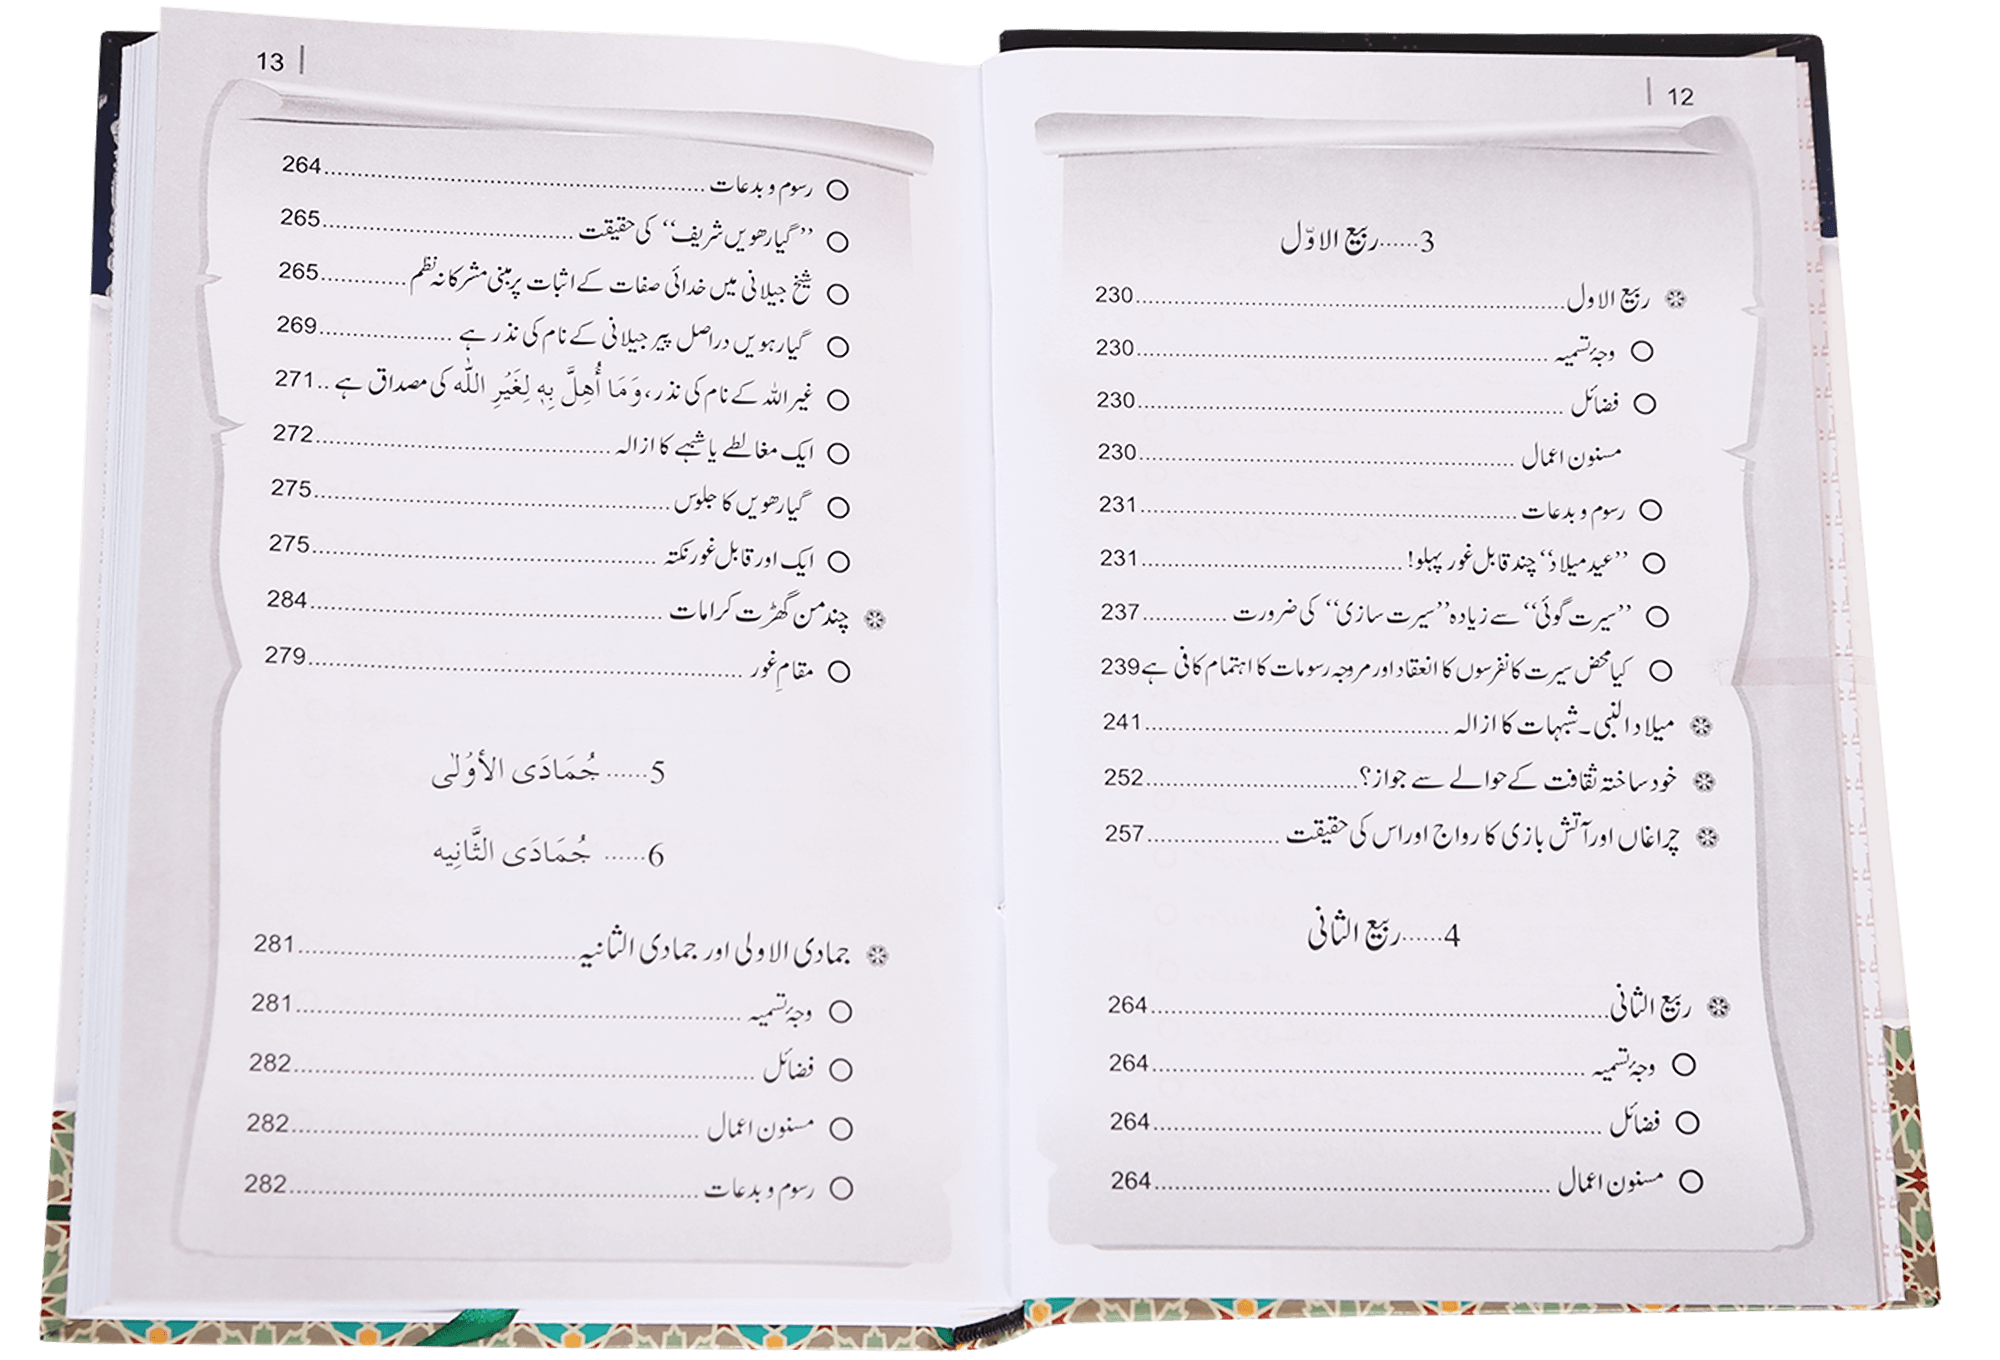 12
3......ربیع الاوّل
ربیع الاول......230
وجۂ تسمیہ......230
فضائل......230
مسنون اعمال......230
رسوم و بدعات......231
”عید میلاد“ چند قابل غور پہلو!......231
”سیرت گوئی“ سے زیادہ ”سیرت سازی“ کی ضرورت......237
کیا محض سیرت کانفرسوں کا انعقاد اور مروجہ رسومات کا اہتمام کافی ہے 239
میلاد النبی۔ شبہات کا ازالہ......241
خود ساختہ ثقافت کے حوالے سے جواز؟......252
چراغاں اور آتش بازی کا رواج اور اس کی حقیقت......257
4......ربیع الثانی
ربیع الثانی......264
وجۂ تسمیہ......264
فضائل......264
مسنون اعمال......264
13
رسوم و بدعات......264
”گیارھویں شریف“ کی حقیقت......265
شیخ جیلانی میں خدائی صفات کے اثبات پر مبنی مشرکانہ نظم......265
گیارہویں دراصل پیر جیلانی کے نام کی نذر ہے......269
غیر اللہ کے نام کی نذر، وَمَا أُهِلَّ بِهٖ لِغَيْرِ اللّٰه کی مصداق ہے..271
ایک مغالطے یا شبہے کا ازالہ......272
گیارھویں کا جلوس......275
ایک اور قابل غور نکتہ......275
چند من گھڑت کرامات......284
مقامِ غور......279
5......جُمَادَى الأوْلٰى
6......جُمَادَى الثَّانِيه
جمادی الاولی اور جمادی الثانیہ......281
وجۂ تسمیہ......281
فضائل......282
مسنون اعمال......282
رسوم و بدعات......282